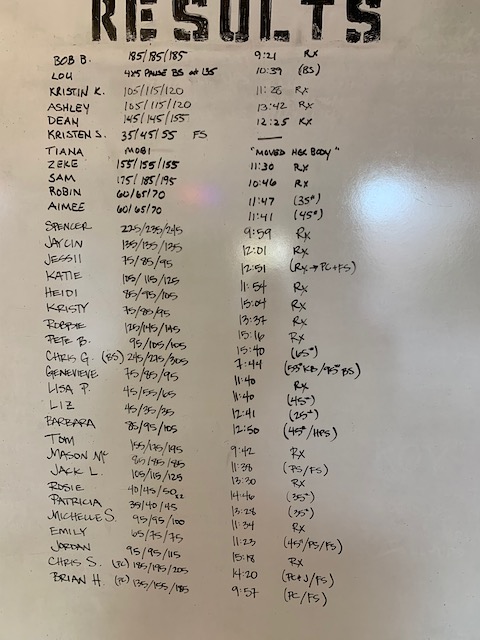 RESULTS
BOB B. 185/185/185 9:21 Rx
LOU 4x5 PAUSE BS at 135 10:39 (BS)
KRISTIN K. 105/115/120 11:28 Rx
ASHLEY 105/115/120 13:42 Rx
DEAN 145/145/155 12:25 Rx
KRISTEN S. 35/45/55 FS —
TIANA MOBI "MOVED HER BODY"
ZEKE 155/155/155 11:30 Rx
SAM 175/185/195 10:46 Rx
ROBIN 60/65/70 11:47 (35#)
AIMEE 60/65/70 11:41 (45#)
SPENCER 225/235/245 9:59 Rx
JAYCIN 135/135/135 12:01 Rx
JESSII 75/85/95 12:51 (Rx→PC+FS)
KATIE 105/115/125 11:54 Rx
HEIDI 85/95/105 15:04 Rx
KRISTY 75/85/95 13:37 Rx
ROBBIE 125/145/145 15:16 Rx
PETE B. 95/105/105 15:40 (65#)
CHRIS G. (BS) 245/275/305 7:44 (55#KB/95#BS)
GENEVIEVE 75/85/95 11:40 Rx
LISA P. 45/55/65 11:40 (45#)
LIZ 45/35/35 12:41 (25#)
BARBARA 85/95/105 12:50 (45#/HPS)
TOM 155/175/195 9:42 Rx
MASON Mc 85/85/85 11:38 (PS/FS)
JACK L. 105/115/125 13:30 Rx
ROSIE 40/45/50 14:46 (35#)
PATRICIA 35/40/45 13:28 (35#)
MICHELLE S. 95/95/100 11:34 Rx
EMILY 65/75/75 11:23 (45#/PS/FS)
JORDAN 95/95/115 15:18 Rx
CHRIS S. (PC) 185/195/205 14:20 (PC+J/FS)
BRIAN H. (PC) 135/155/185 9:57 (PC/FS)